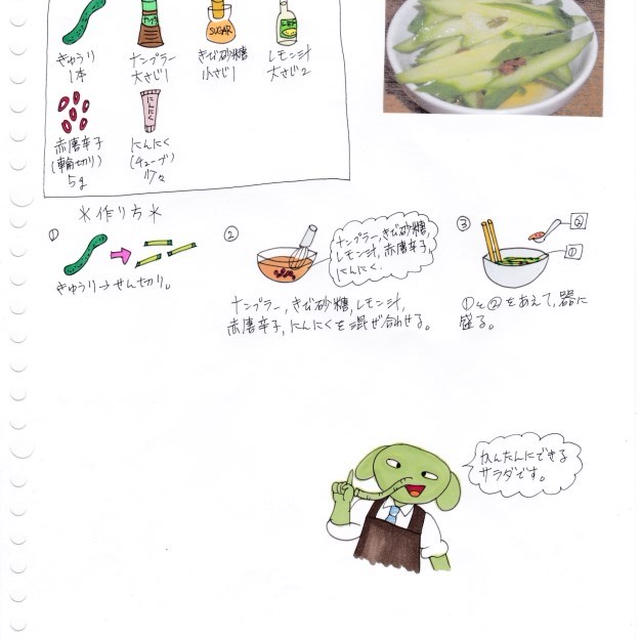 きゅうり
1本
ナンプラー
大さじ1
SUGAR
きび砂糖
小さじ1
レモン汁
大さじ2
赤唐辛子
(輪切り)
5g
にんにく
にんにく
(チューブ)
少々
*作り方*
①
きゅうり→せん切り。
②
ナンプラー,きび砂糖,
レモン汁,赤唐辛子,
にんにく.
ナンプラー,きび砂糖,レモン汁,
赤唐辛子,にんにくを混ぜ合わせる。
③
②
①
①と②をあえて,器に
盛る。
かんたんにできる
サラダです。